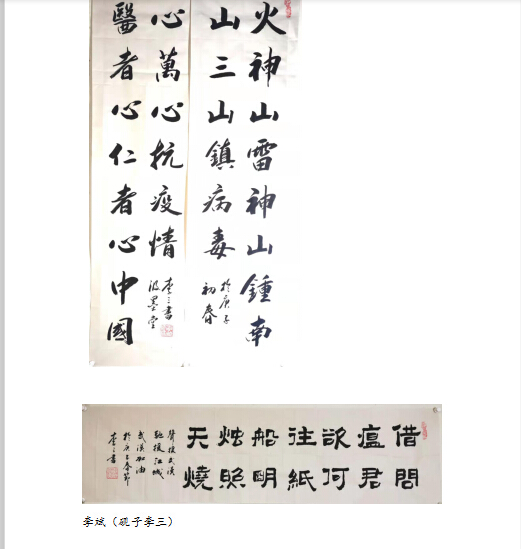 火神山雷神山鍾南
山三山鎮病毒
於庚子
初春
醫者心仁者心中國
心萬心抗疫情
李三書
墨堂
借問
瘟君
欲何
往紙
船明
烛照
天燒
聲援武漢
馳援江城
武漢加油
於庚子春節
李三書
李斌（砚子李三）